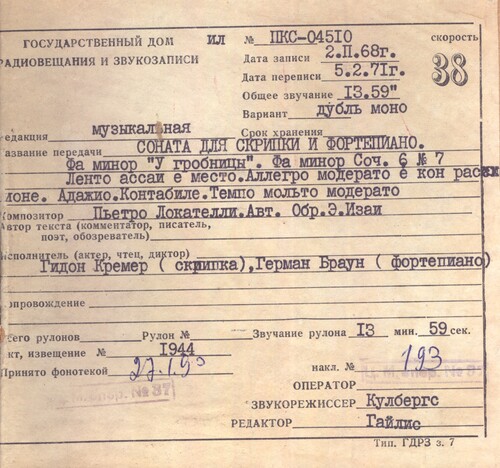 ГОСУДАРСТВЕННЫЙ ДОМ ИЛ № ПКС-04510 скорость
РАДИОВЕЩАНИЯ И ЗВУКОЗАПИСИ Дата записи 2.П.68г.
Дата переписи 5.2.71г. 38
Общее звучание 13.59"
Вариант дубль моно
Редакция музыкальная Срок хранения
Название передачи СОНАТА ДЛЯ СКРИПКИ И ФОРТЕПИАНО.
Фа минор "У гробницы". Фа минор Соч. 6 № 7
Ленто ассаи е место. Аллегро модерато е кон
ионе. Адажио. Контабиле. Темпо мольто модерато
Композитор Пьетро Локателли. Авт. Обр. Э. Изаи
Автор текста (комментатор, писатель,
поэт, обозреватель)
Исполнитель (актер, чтец, диктор)
Гидон Кремер ( скрипка), Герман Браун ( фортепиано)
Сопровождение
Всего рулонов Рулон № Звучание рулона 13 мин. 59 сек.
Акт, извещение № 1944
Принято фонотекой накл. № 193
ОПЕРАТОР
ЗВУКОРЕЖИССЕР Кулбергс
РЕДАКТОР Гайлис
Тип. ГДРЗ з. 7